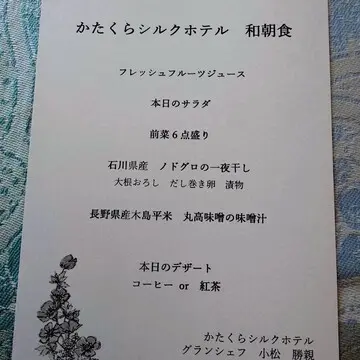 かたくらシルクホテル　和朝食
フレッシュフルーツジュース
本日のサラダ
前菜６点盛り
石川県産　ノドグロの一夜干し
大根おろし　だし巻き卵　漬物
長野県産木島平米　丸高味噌の味噌汁
本日のデザート
コーヒー or　紅茶
かたくらシルクホテル
グランシェフ　小松　勝親